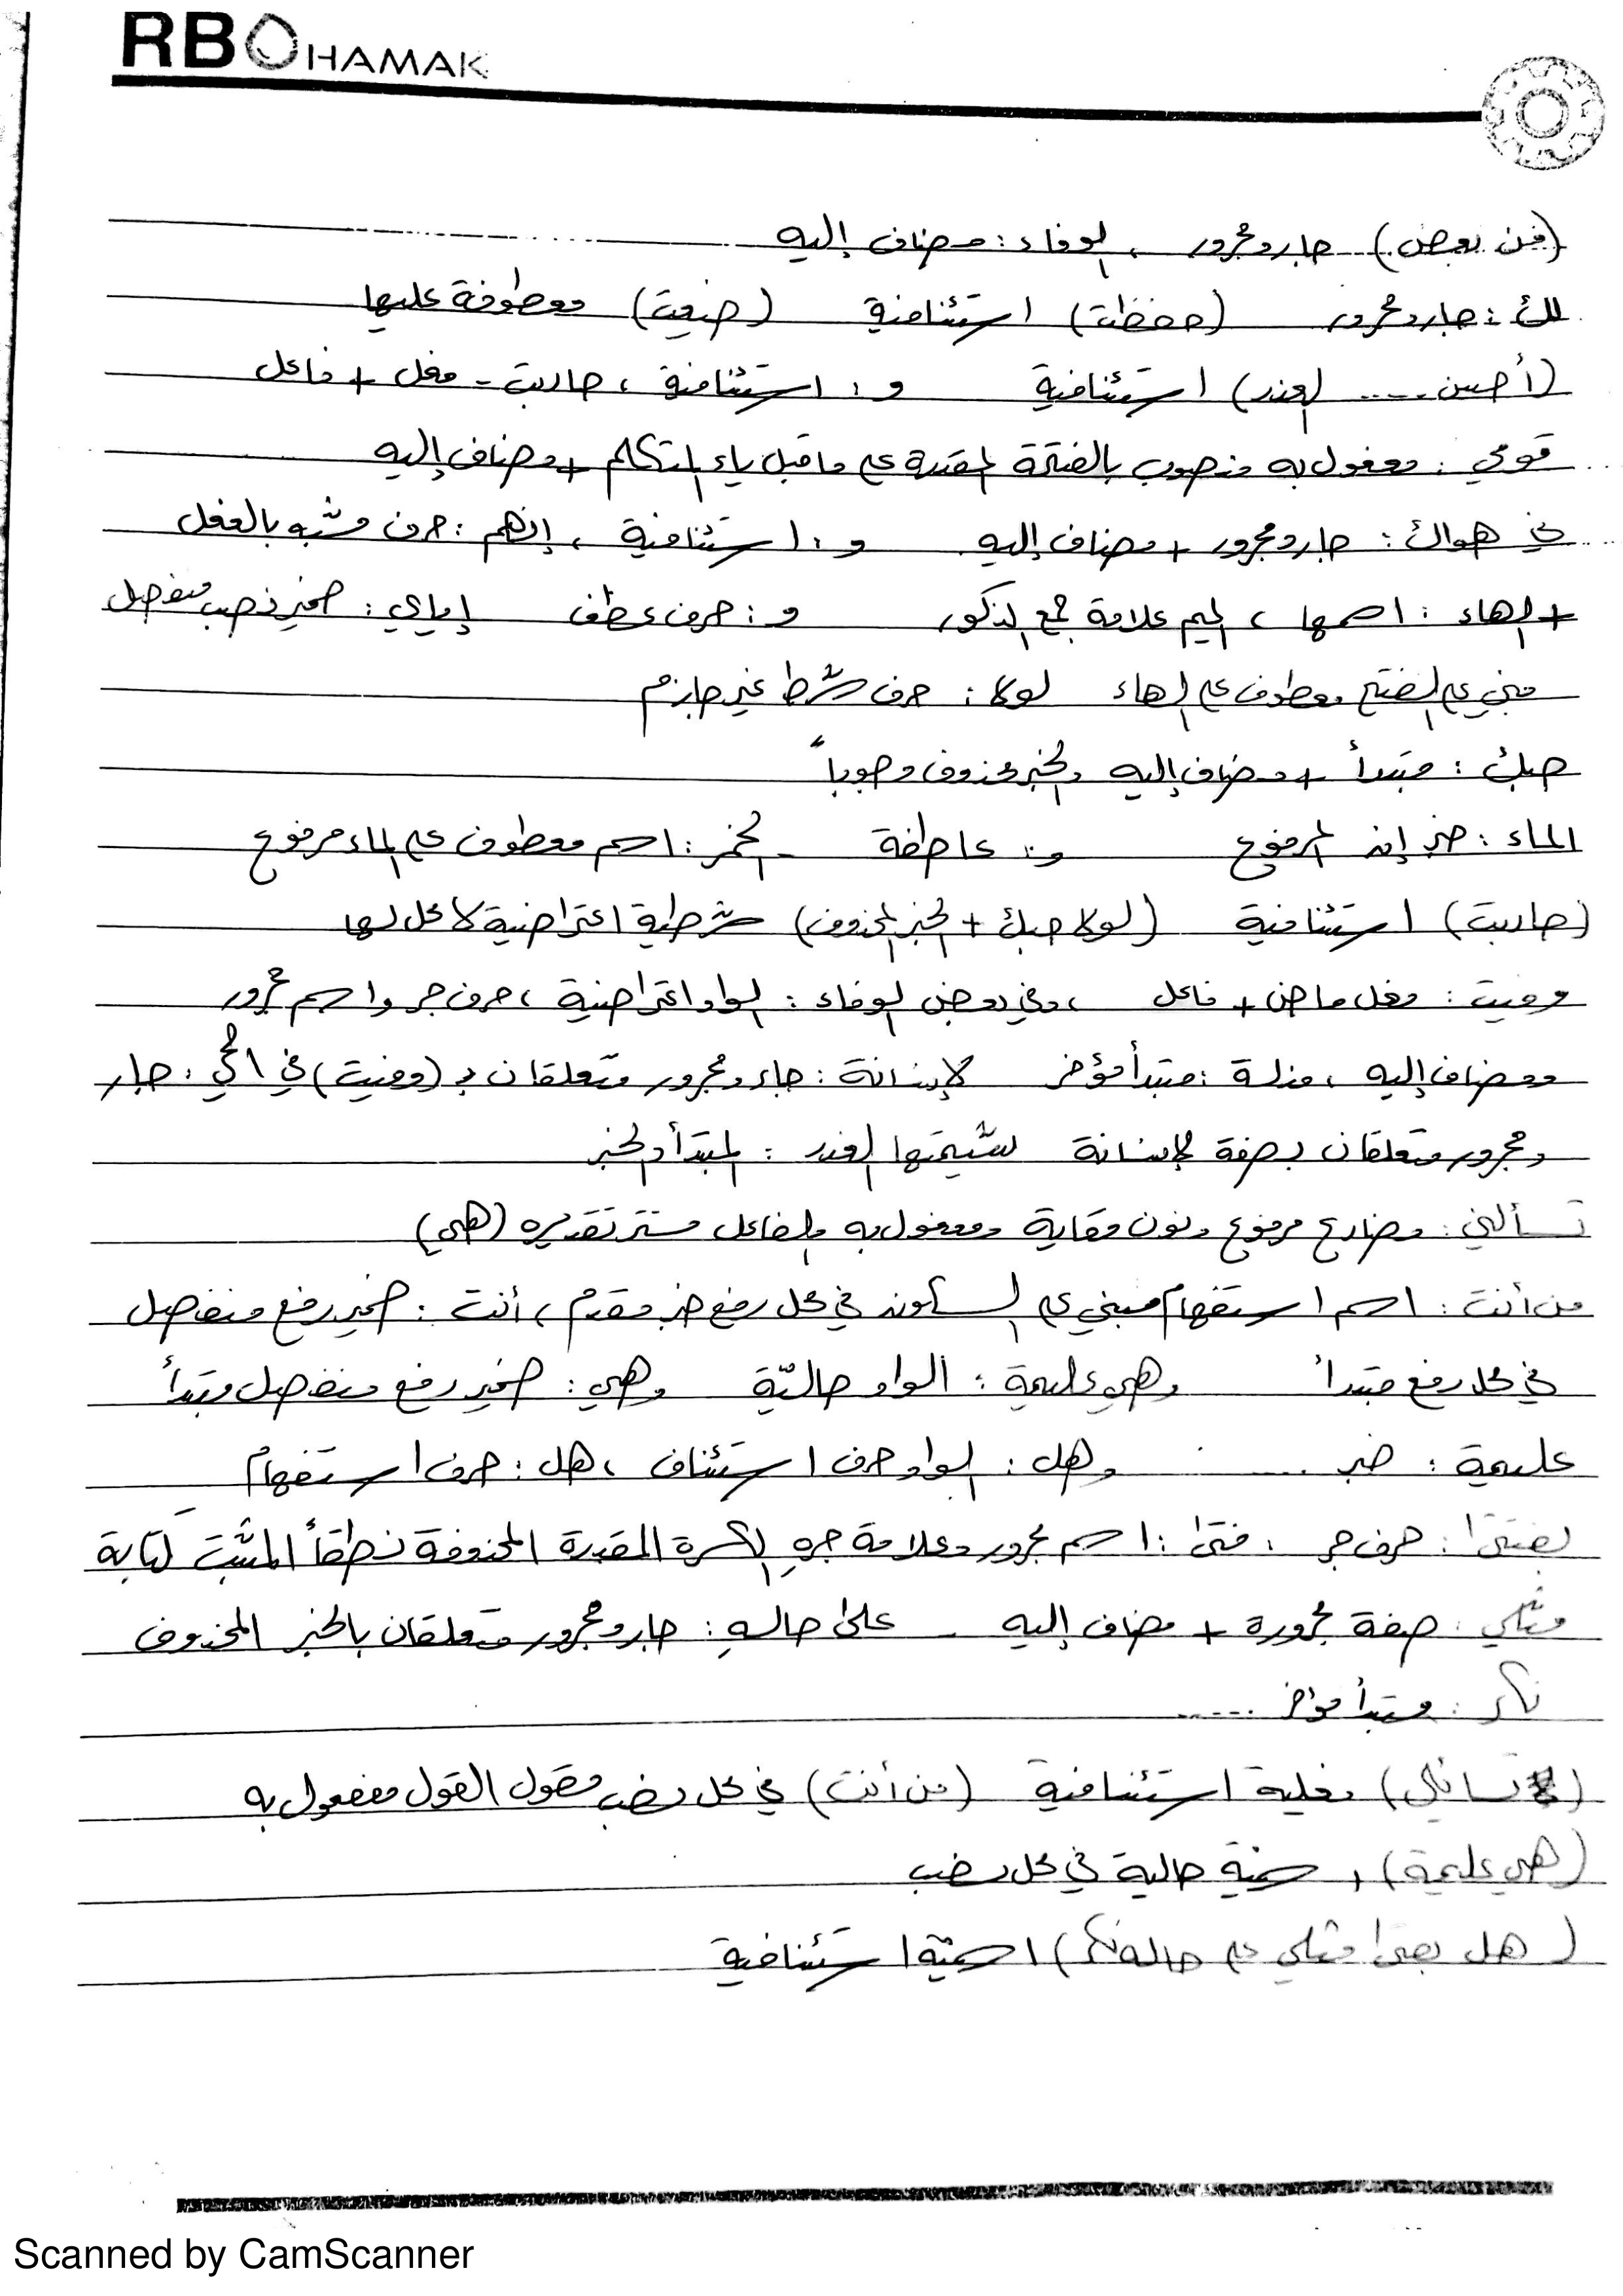 RBOHAMAK
(من بعض) جار ومجرور ، الوفاء : مضاف إليه
لك : جار ومجرور (حفظت) استئنافية (ضيعت) معطوفة عليها
(أحسن ..... العذر) استئنافية و : استئنافية ، حاربت - فعل + فاعل
قومي : مفعول به منصوب بالفتحة المقدرة على ما قبل ياء المتكلم + مضاف إليه
في هواك : جار ومجرور + مضاف إليه و : استئنافية ، إنهم : حرف مشبه بالفعل
+ الهاء : اسمها ، الميم علامة جمع الذكور و : حرف عطف إياي : ضمير نصب منفصل
مبني على الفتح معطوف على الهاء لولا : حرف شرط غير جازم
حبك : مبتدأ + مضاف إليه والخبر محذوف وجوباً
الماء : خبر إن المرفوع و : عاطفة - الخمر : اسم معطوف على الماء مرفوع
(حاربت) استئنافية (لولا حبك + الخبر المحذوف) شرطية اعتراضية لا محل لها
وفيت : فعل ماض + فاعل ، وفي بعض الوفاء : الواو اعتراضية ، حرف جر واسم مجرور
ومضاف إليه ، مذلة : مبتدأ مؤخر لإنسانة : جار ومجرور متعلقان بـ (وفيت) في الحي : جار
ومجرور متعلقان بصفة لإنسانة شيمتها الغدر : المبتدأ والخبر
تسألني : مضارع مرفوع ونون وقاية ومفعول به والفاعل مستتر تقديره (هي)
من أنت : اسم استفهام مبني على السكون في محل رفع خبر مقدم ، أنت : ضمير رفع منفصل
في محل رفع مبتدأ وهي عليمة : الواو حاليّة وهي : ضمير رفع منفصل مبتدأ
عليمة : خبر ..... وهل : الواو حرف استئناف ، هل : حرف استفهام
بفتىً : حرف جر ، فتىً : اسم مجرور وعلامة جره الكسرة المقدرة المحذوفة نطقاً المثبت كتابة
مثلي : صفة مجرورة + مضاف إليه - على حاله : جار ومجرور متعلقان بالخبر المحذوف
نكر : مبتدأ مؤخر .....
(تسائلني) فعلية استئنافية (من أنت) في محل نصب مقول القول مفعول به
(هي عليمة) اسمية حالية في محل نصب
(هل بفتىً مثلي على حاله نكر) اسميّة استئنافية
Scanned by CamScanner